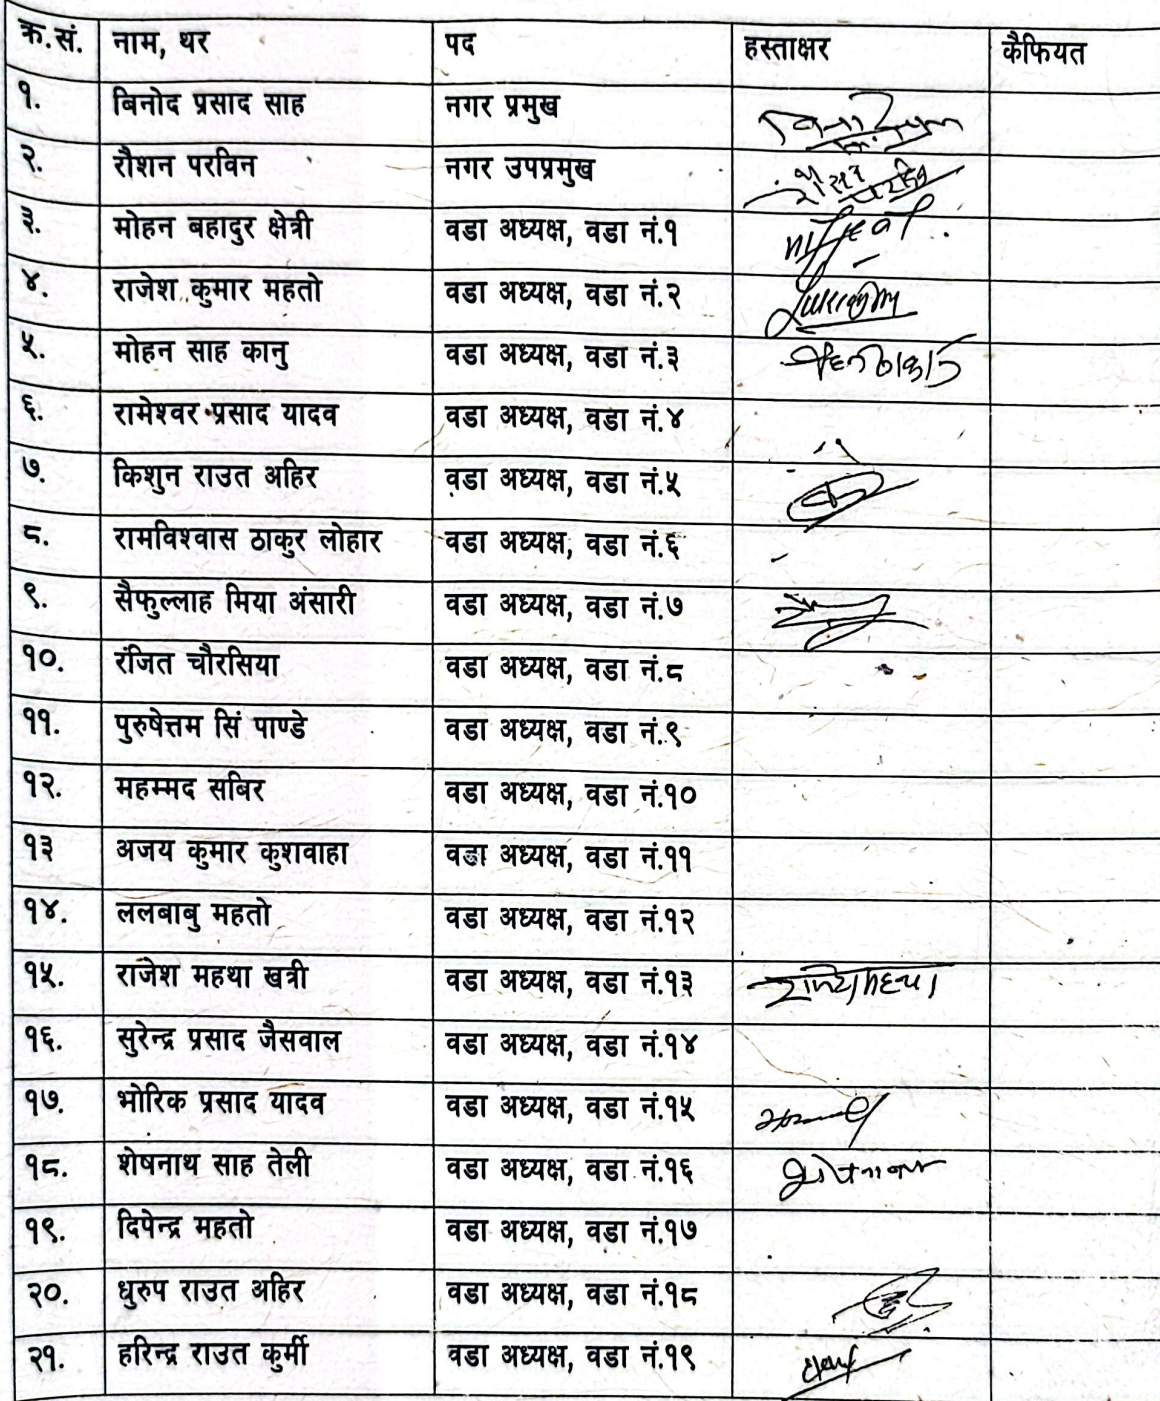 क्र.सं. नाम, थर पद हस्ताक्षर कैफियत
१. बिनोद प्रसाद साह नगर प्रमुख
२. रौशन परविन नगर उपप्रमुख रौसन परविन
३. मोहन बहादुर क्षेत्री वडा अध्यक्ष, वडा नं.१
४. राजेश कुमार महतो वडा अध्यक्ष, वडा नं.२
५. मोहन साह कानु वडा अध्यक्ष, वडा नं.३
६. रामेश्वर प्रसाद यादव वडा अध्यक्ष, वडा नं.४
७. किशुन राउत अहिर वडा अध्यक्ष, वडा नं.५
८. रामविश्वास ठाकुर लोहार वडा अध्यक्ष, वडा नं.६
९. सैफुल्लाह मिया अंसारी वडा अध्यक्ष, वडा नं.७
१०. रंजित चौरसिया वडा अध्यक्ष, वडा नं.८
११. पुरुषेत्तम सिं पाण्डे वडा अध्यक्ष, वडा नं.९
१२. महम्मद सबिर वडा अध्यक्ष, वडा नं.१०
१३ अजय कुमार कुशवाहा वडा अध्यक्ष, वडा नं.११
१४. ललबाबु महतो वडा अध्यक्ष, वडा नं.१२
१५. राजेश महथा खत्री वडा अध्यक्ष, वडा नं.१३
१६. सुरेन्द्र प्रसाद जैसवाल वडा अध्यक्ष, वडा नं.१४
१७. भोरिक प्रसाद यादव वडा अध्यक्ष, वडा नं.१५
१८. शेषनाथ साह तेली वडा अध्यक्ष, वडा नं.१६
१९. दिपेन्द्र महतो वडा अध्यक्ष, वडा नं.१७
२०. धुरुप राउत अहिर वडा अध्यक्ष, वडा नं.१८
२१. हरिन्द्र राउत कुर्मी वडा अध्यक्ष, वडा नं.१९